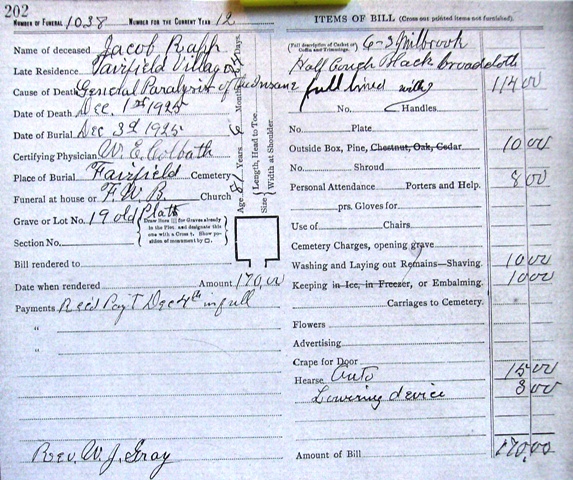 202
NUMBER OF FUNERAL 1038 NUMBER FOR THE CURRENT YEAR 12
Name of deceased Jacob Rapp
Late Residence Fairfield Village
Cause of Death General Paralysis of the Insane
Date of Death Dec. 1st 1925
Date of Burial Dec 3d 1925
Certifying Physician W. E. Colbath
Place of Burial Fairfield Cemetery
Funeral at house or F.W.B. Church
Grave or Lot No. 19 old Platt
Section No.
Draw Here for Graves already in the Plot, and designate this one with a Cross †. Show position of monument by □.
Age 81 Years 6 Months Days.
Size Length, Head to Toe.
Width at Shoulder
Bill rendered to
Date when rendered Amount 170,00
Payments Rec'd Pay't Dec 4th in full
"
"
Rev. W. J. Gray
ITEMS OF BILL (Cross out printed items not furnished).
(Full description of Casket or Coffin and Trimmings. 6-3 Milbrook
Half Couch Black broadcloth
full lined 114 00
No. Handles
No. Plate
Outside Box, Pine, Chestnut, Oak, Cedar 10 00
No. Shroud
Personal Attendance Porters and Help. 8 00
prs. Gloves for
Use of Chairs
Cemetery Charges, opening grave
Washing and Laying out Remains—Shaving. 10 00
Keeping in Ice, in Freezer, or Embalming. 10 00
Carriages to Cemetery.
Flowers
Advertising
Crape for Door
Hearse Auto 15 00
Lowering device 3 00
Amount of Bill 170,00